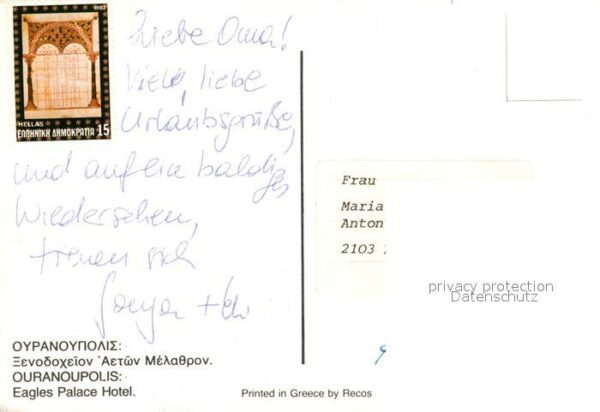 1982
HELLAS
ΕΛΛΗΝΙΚΗ ΔΗΜΟΚΡΑΤΙΑ 15
Liebe Oma!
Viele, liebe
Urlaubsgrüße,
und auf ein baldiges
Wiedersehen,
freuen sich
Sonja +
Frau
Maria
Anton
2103
privacy protection
Datenschutz
ΟΥΡΑΝΟΥΠΟΛΙΣ:
Ξενοδοχεῖον Ἀετῶν Μέλαθρον.
OURANOUPOLIS:
Eagles Palace Hotel.
Printed in Greece by Recos